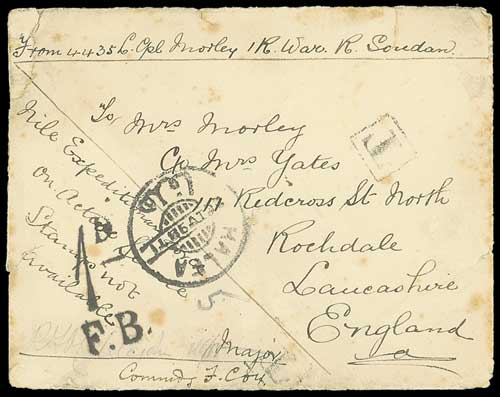 From 4435 L. Cpl Morley 1 R. War. R. Soudan.
To Mrs Morley
C/o Mrs Yates
117 Redcross St North
Rochdale
Lancashire
England
Nile Expeditionary
on Active
Stamps not
available
T
HALFA
F.B.
Major
Commdg F. Coy